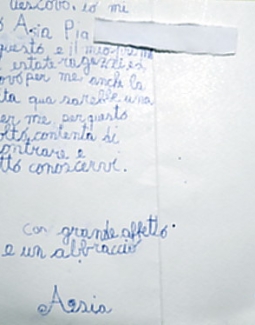 vescovo. io mi
Asia Pia
questo è il mio
estate ragazzi ed
per me anche la
qua sarebbe una
er me per questo
contenta di
contrare e
conoscervi.
con grande affetto
e un abbraccio
Asia